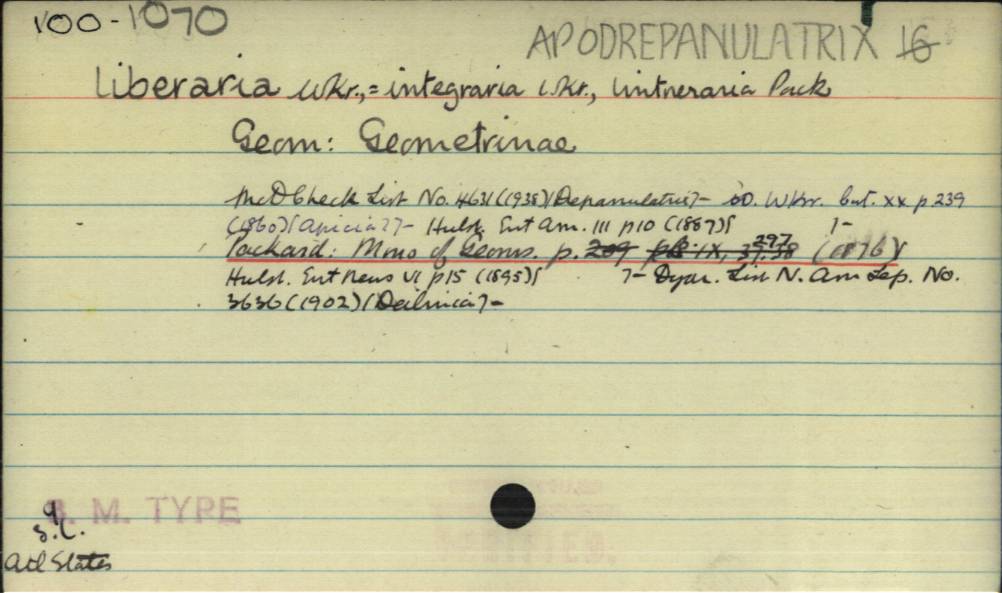 100-1070
APODREPANULATRIX 16
liberaria Wkr., = integraria Wkr., lintneraria Pack
Geom: Geometrinae
McD Check List No. 4631 (1938) [Depanulatrix] - OD. Wkr. Cat. xx p 239
(1860) [Apicia?] - Hulst. Ent Am. III p 10 (1887) [ ] -
Packard: Mono of Geoms. p. 209 pl. IX, 37, 38 297 (1876) [
Hulst. Ent News VI p 15 (1895) [ ] - Dyar. List N. Am Lep. No.
3636 (1902) [Deilinia] -
B. M. TYPE
S.C.
Atl States